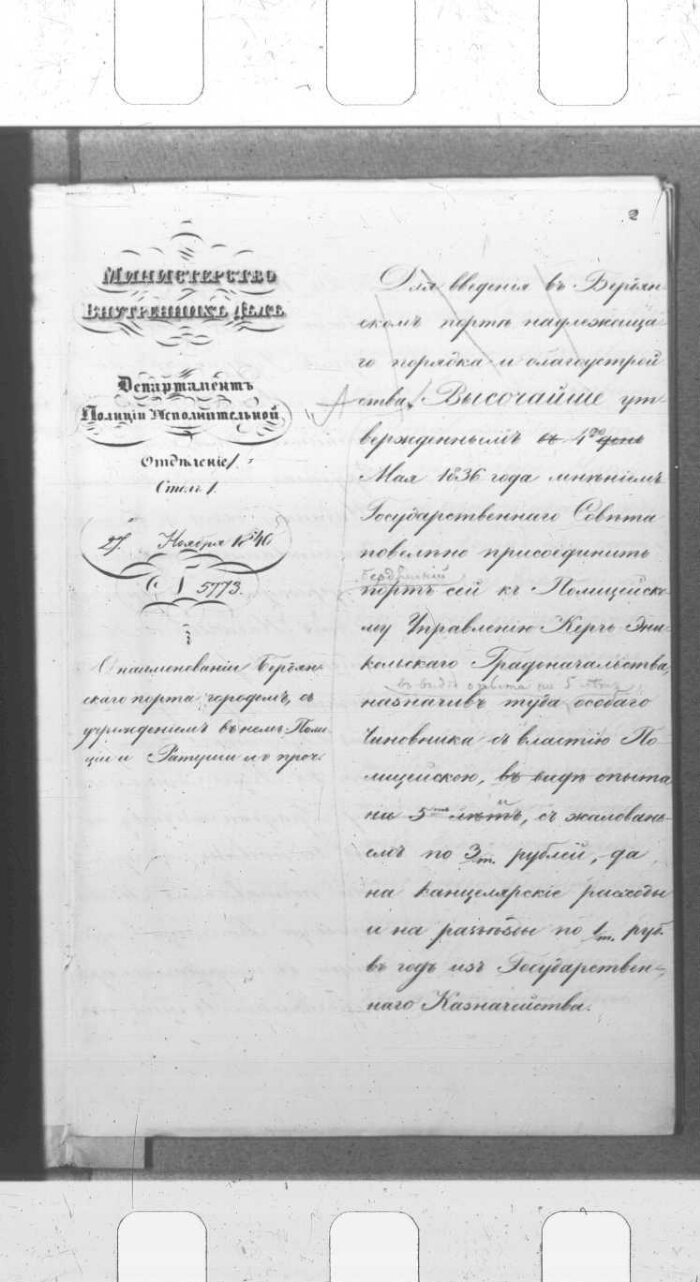 2
Министерство
Внутреннихъ Дѣлъ
Департаментъ
Полиціи Исполнительной
Отдѣленіе 1.
Столъ 1.
27. Ноября 1840
№ 5773.
О наименованіи Бердян-
скаго порта городомъ, съ
учрежденіемъ въ немъ Поли
ціи и Ратуши и проч:
Для введенія въ Бердян-
скомъ портѣ надлежаща-
го порядка и благоустрой
ства, Высочайше ут
вержденнымъ въ 1й день
Мая 1836 года мнѣніемъ
Государственнаго Совѣта
повелѣно присоединить
Бердянскій
портъ сей къ Полицейско
му Управленію Керчь Эни
кольскаго Градоначальства,
въ видѣ опыта на 5 лѣтъ
назначивъ туда особаго
Чиновника съ властію По-
лицейскою, въ видѣ опыта
на 5 лѣтъ, съ жаловань-
емъ по 3/т. рублей, да
на канцелярскіе расходы
и на разъѣзды по 1/т. руб.
въ годъ изъ Государствен-
наго Казначейства.